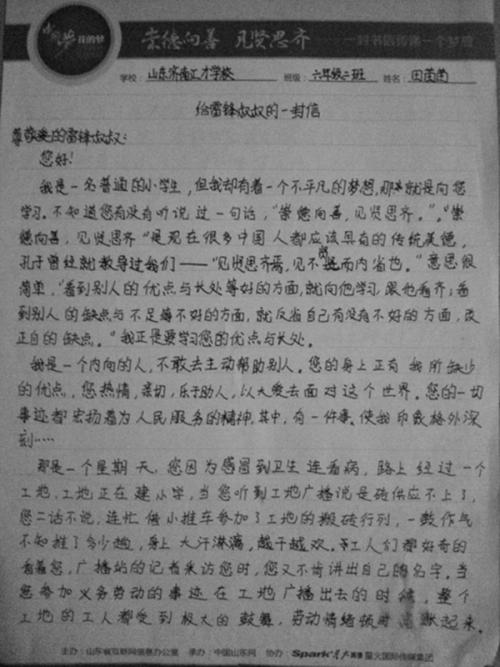 中国梦 我的梦
崇德向善 见贤思齐 一封书信传递一个梦想
学校：山东济南汇才学校 班级：六年级二班 姓名：田茵茵
给雷锋叔叔的一封信
尊敬的雷锋叔叔：
您好！
我是一名普通的小学生，但我却有着一个不平凡的梦想，那就是向您
学习。不知道您有没有听说过一句话，“崇德向善，见贤思齐。”。“崇
德向善，见贤思齐”是现在很多中国人都应该具有的传统美德，
孔子曾经就教导过我们——“见贤思齐焉，见不贤而内省也。”意思很
简单，“看到别人的优点与长处等好的方面，就向他学习，跟他看齐；看
到别人的缺点与不足等不好的方面，就反省自己有没有不好的方面，改
正自的缺点。”我正是要学习您的优点与长处。
我是一个内向的人，不敢去主动帮助别人。您的身上正有我所缺少
的优点，您热情，亲切，乐于助人，以大爱去面对这个世界。您的一切
事迹都宏扬着为人民服务的精神，其中，有一件事，使我印象格外深
刻……
那是一个星期天，您因为感冒到卫生连看病，路上经过一个
工地，工地正在建小学，当您听到工地广播说是砖供应不上了，
您二话不说，连忙借小推车参加了工地的搬砖行列，一鼓作气
不知推了多少趟，身上大汗淋漓，越干越欢。工人们都好奇的
看着您，广播站的记者采访您时，您又不肯讲出自己的名字。当
您参加义务劳动的事迹在工地广播出去的时候，整个
工地的工人都受到极大的鼓舞，劳动情绪顿时高涨起来。
主办：山东省互联网信息办公室 承办：中国山东网 协办：Spark 星火英语 星火国际传媒集团